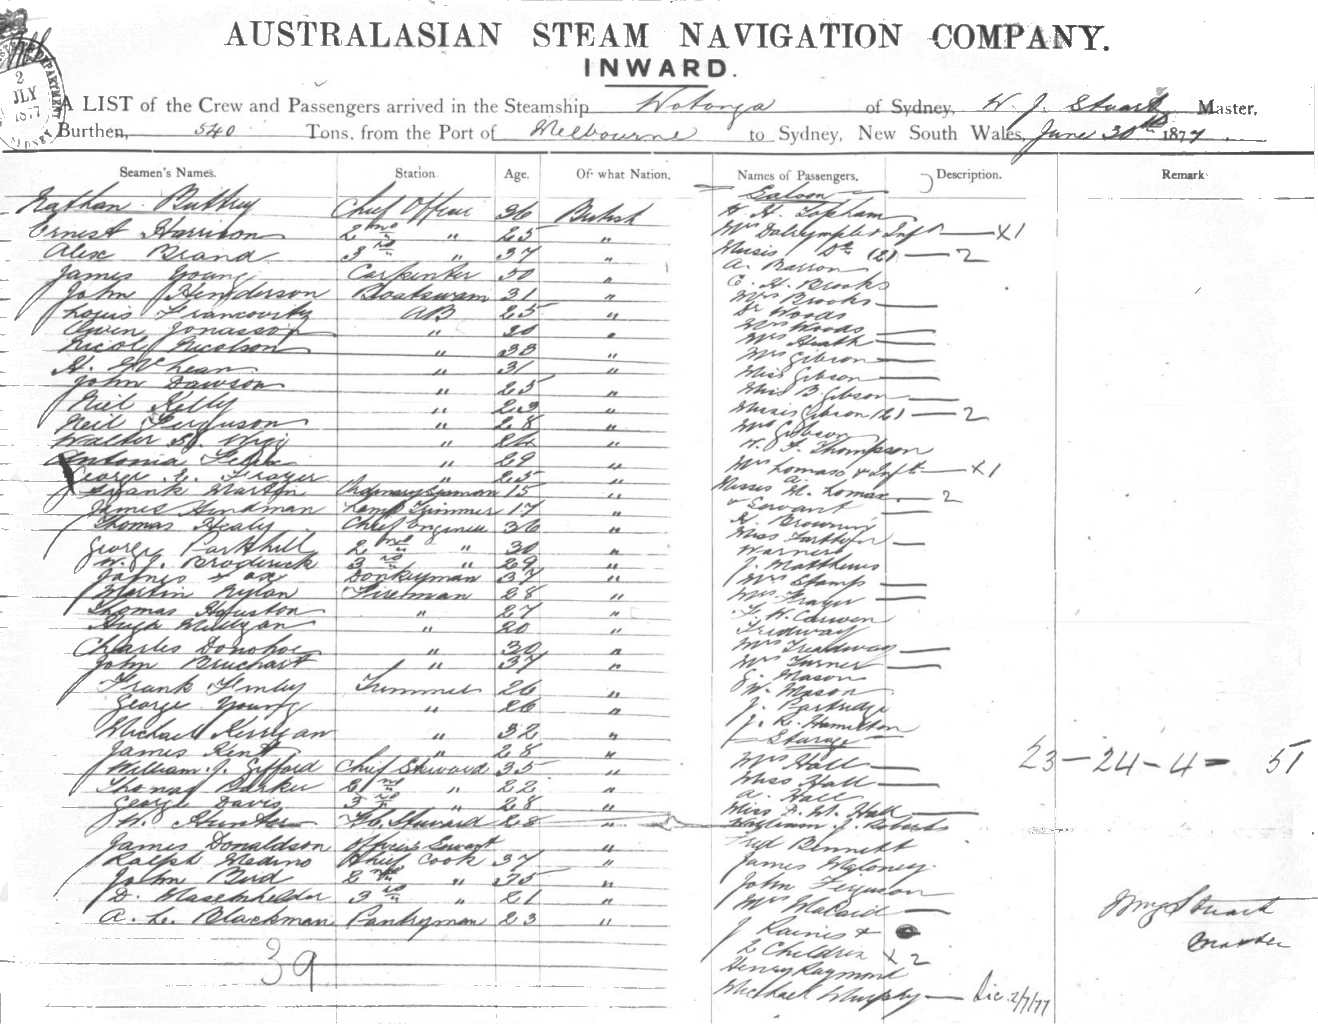 AUSTRALASIAN STEAM NAVIGATION COMPANY.
INWARD.
2
JLY
1877
A LIST of the Crew and Passengers arrived in the Steamship Wotonga of Sydney, W. J. Stuart Master,
Burthen, 540 Tons, from the Port of Melbourne to Sydney, New South Wales, June 30th 1877.
Seamen's Names. Station. Age. Of what Nation.
Nathan Chief Officer 36 British
Ernest Harrison 2nd " 25 "
Alex Brand 3rd " 37 "
James Young Carpenter 50 "
John Henderson Boatswain 31 "
Louis AB 25 "
Owen Jonasson " 30 "
Nicol Nicolson " 33 "
" 31 "
John Dawson " 25 "
Neil Kelly " 23 "
Neil Ferguson " 28 "
Walter " "
Antonia " 29 "
George E. Frazer " 25 "
Frank Martin Ordinary Seaman 15 "
James Hindman Lamp Trimmer 17 "
Thomas Healy Chief Engineer 36 "
George Parkhill 2nd " 30 "
W. J. Broderick 3rd " 29 "
James Donkeyman 37 "
Martin Nylon Fireman 28 "
Thomas Houston " 27 "
Hugh " 20 "
Charles Donohoe " 30 "
John " 37 "
Frank Finley Trimmer 26 "
George Young " 26 "
Michael Kerrigan " 32 "
James Kent " 28 "
William J. Gifford Chief Steward 35 "
Thomas Barker 2nd " 22 "
George Davis 3rd " 28 "
W. Hunter Steward 28 "
James Donaldson Officers Servant "
Ralph Chief Cook 37 "
John Bird 2nd " "
D. 3rd " 21 "
A. L. Blackman Pantryman 23 "
39
Names of Passengers. Description. Remark
Saloon
H. H. Topham
Mrs Dalrymple & Inft X1
Misses Do (2) 2
A. Barron
C. H. Brooks
Mrs Brooks
Dr Woods
Mrs Woods
Mrs Heath
Mrs Gibson
Miss Gibson
Miss B Gibson
Misses Gibson (2) 2
Mrs Gibson
Thompson
Mrs Lomax & Inft X1
Misses Lomax 2
& Servant
H. Browning
Miss
Warner
J. Matthews
Mrs Stamp
Mrs Frazer
Tredway
Mrs Treadway
Mrs Turner
G. Mason
W. Mason
J. Partridge
Hamilton
Sturage
Mrs Hall
Miss Hall
A. Hall
Miss Hall
J. Roberts
Fred Bennett
James Maloney
John Ferguson
Mrs
J Raines &
2 Children X 2
Henry Raymond
Michael Murphy
23 - 24 - 4 = 51
Stuart
Master
2/7/77